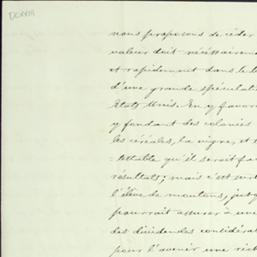 DCXVIII
nous proposons de céder
valeur doit nécessairem
et rapidement dans le
d'une grande spéculat
Etats Unis. En y favor
y fondant des colonies
les céréales, la vigne, et
-testable qu'il serait fa
résultats; mais c'est sur
l'élève de moutons, jusq
pourrait assurer à une
des dividendes considéra
pour l'avenir une